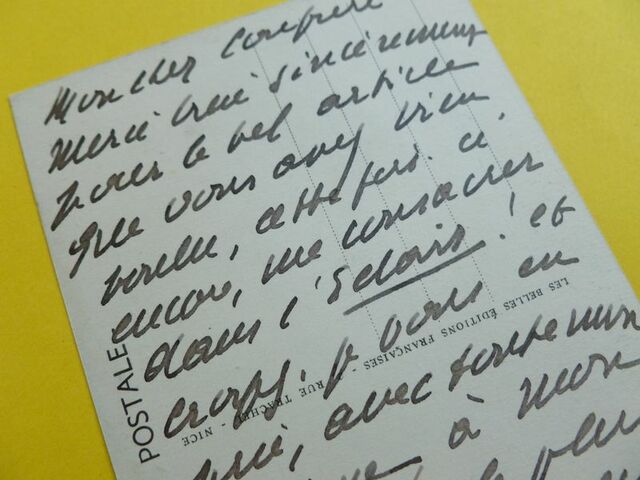 Mon cher confrère
Merci bien sincèrement
pour le bel article
que vous avez bien
voulu, cette fois-ci
encore, me consacrer
dans l'Eclair! et
croyez, je vous en
prie, avec toute mon
à mon
plus
POSTALE
LES BELLES ÉDITIONS FRANÇAISES - RUE TRACHEL - NICE